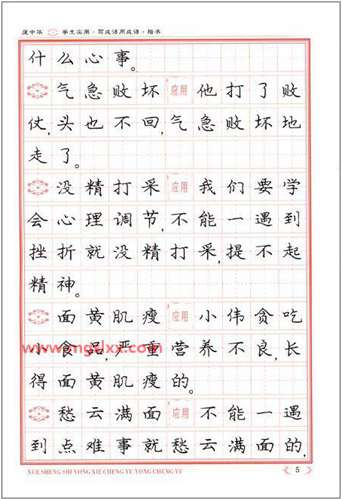 庞中华 学生实用·写成语用成语·楷书
什么心事。
气急败坏 应用 他打了败
仗,头也不回,气急败坏地
走了。
没精打采 应用 我们要学
会心理调节,不能一遇到
挫折就没精打采,提不起
精神。
面黄肌瘦 应用 小伟贪吃
小食品,严重营养不良,长
得面黄肌瘦的。
愁云满面 应用 不能一遇
到点难事就愁云满面的,
XUE SHENG SHI YONG XIE CHENG YU YONG CHENG YU
5